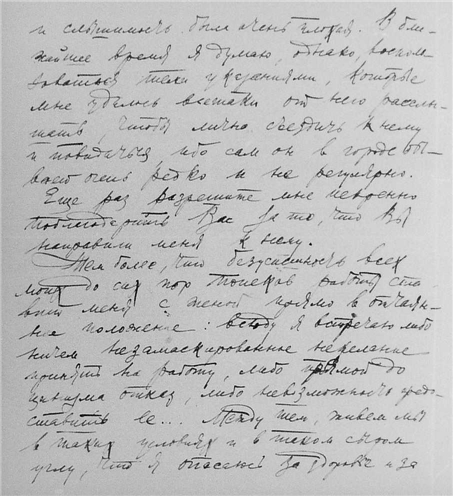 и слышимость была очень плохая. В бли-
жайшее время я думаю, однако, восполь-
зоваться теми указаниями, которые
мне удалось всетаки от него расслы-
шать, чтобы лично съездить к нему
и повидаться ибо сам он в городе бы-
вает очень редко и не регулярно.
Еще раз разрешите мне искренно
поблагодарить Вас за то, что Вы
направили меня к нему.
Тем более, что безуспешность всех
моих до сих пор поисков работы ста-
вит меня с женой прямо в отчаян-
ное положение: всюду я встречаю либо
ничем незамаскированное нежелание
принять на работу, либо прямой до
цинизма отказ, либо невозможность предо-
ставить ее... Между тем, живем мы
в таких условиях и в таком сыром
углу, что я опасаюсь за здоровье и за